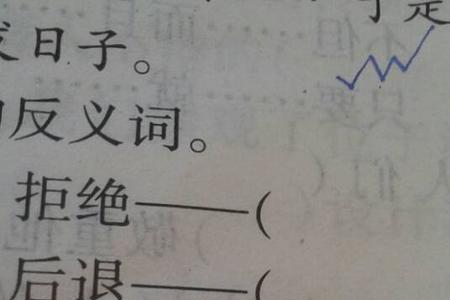 是
日子。
反义词。
拒绝——(
后退——(